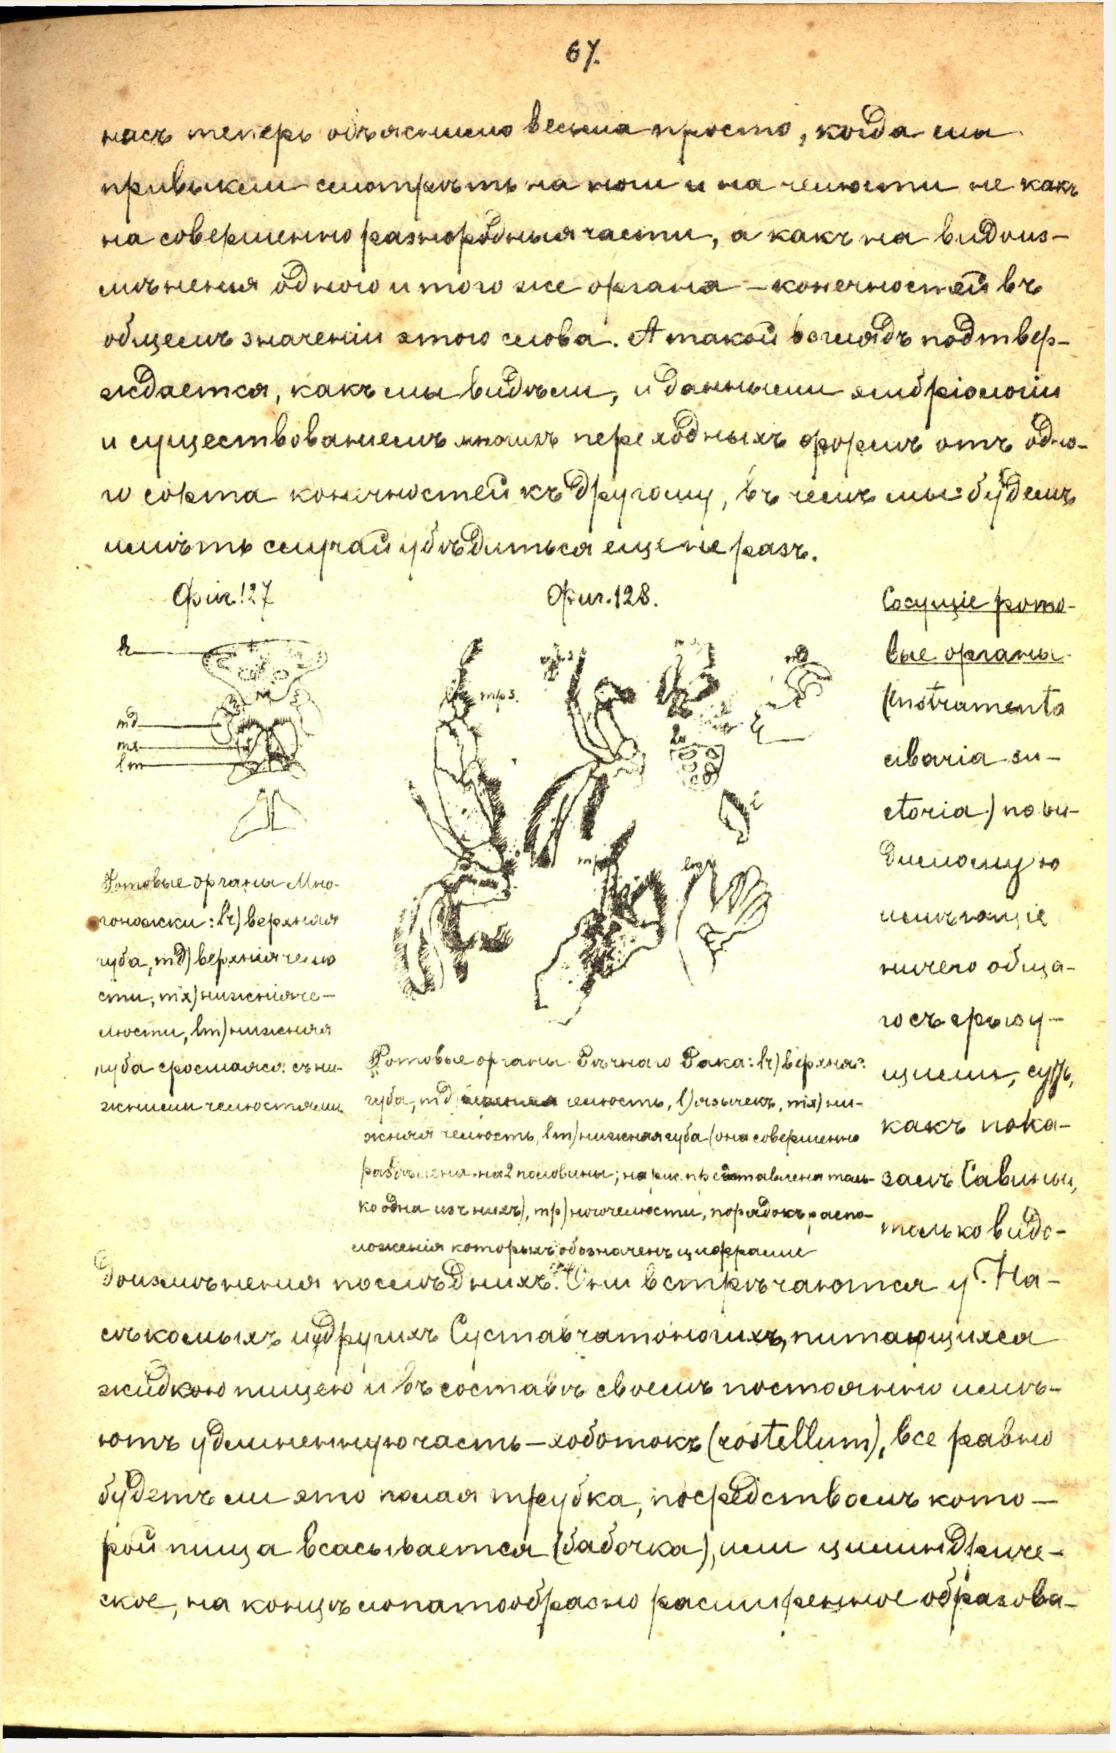 67.
насъ теперь объяснимо весьма просто, когда мы
привыкли смотрѣть на ноги и на челюсти не какъ
на совершенно разнородныя части, а какъ на видоиз-
мѣненія одного и того же органа – конечностей въ
общемъ значеніи этого слова. А такой взглядъ подтвер-
ждается, какъ мы видѣли, и данными эмбріологіи
и существованіемъ многихъ переходныхъ формъ отъ одно-
го сорта конечностей къ другому, въ чемъ мы будемъ
имѣть случай убѣдиться еще не разъ.
Фиг. 127
lr
md
mx
lm
Ротовые органы Мно-
гоножки: lr) верхняя
губа, md) верхнія челю
сти, mx) нижнія че-
люсти, lm) нижняя
губа сросшаяся съ ни-
жними челюстями
Фиг. 128.
mp3.
Ротовые органы Рѣчнаго Рака: lr) верхня:
губа, md челюсть, l) язычекъ, mx) ни-
жняя челюсть, lm) нижняя губа (она совершенно
раздѣлена на 2 половины; на рис. представлена толь-
ко одна изъ нихъ), mp) ногочелюсти, порядокъ распо-
ложенія которыхъ обозначенъ цифрами
Сосущіе рото-
вые органы
(Instramenta
cibaria su-
ctoria) по ви-
димому ю
имѣющіе
ничего обща-
го съ грызу-
щими, суть,
какъ пока-
залъ Савиньи,
только видо-
доизмѣненія послѣднихъ. Они встрѣчаются у На-
сѣкомыхъ и другихъ Суставчатоногихъ, питающихся
жидкою пищею и въ составѣ своемъ постоянно имѣ-
ютъ удлиненную часть – хоботокъ (rostellum), все равно
будетъ ли это полая трубка, посредствомъ кото-
рой пища всасывается (бабочка), или цилиндриче-
ское, на концѣ лопатообразно расширенное образова-